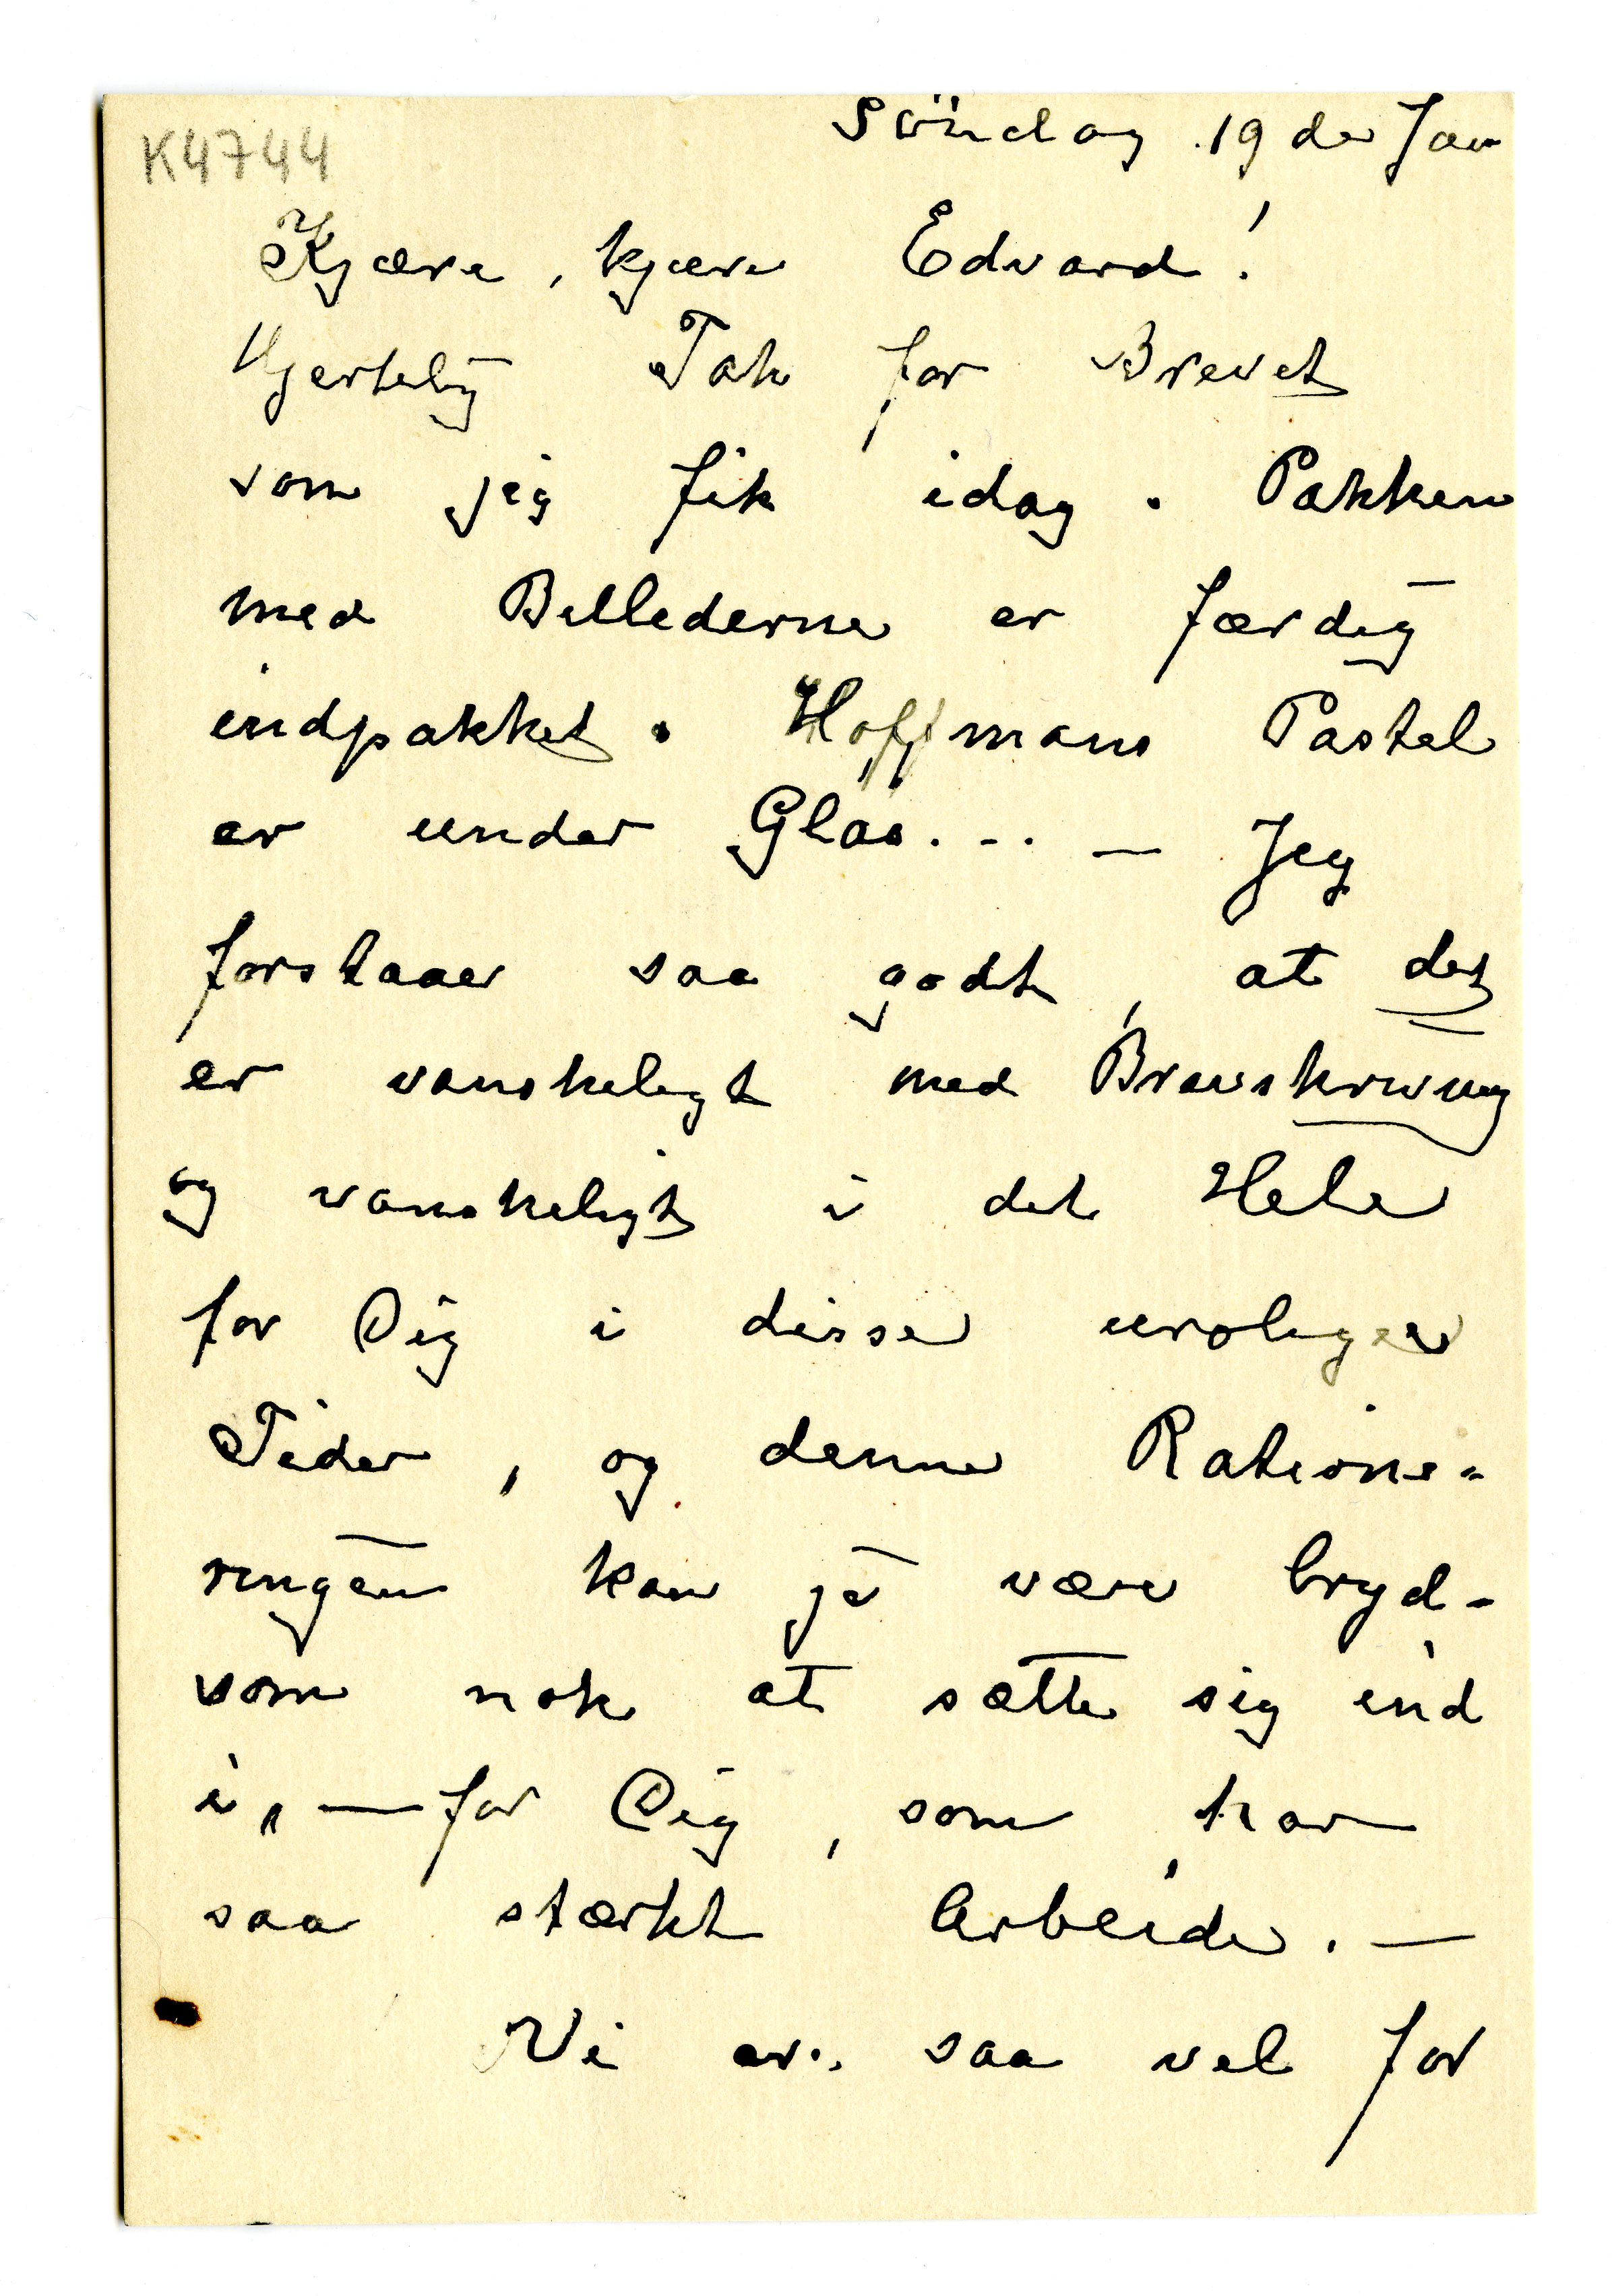 K4744
Söndag 19 de Jan
Kjære, kjære Edvard!
Hjertelig Tak for Brevet
som jeg fik idag. Pakken
med Billederne er færdig
indpakket. Hoffmans Pastel
er under Glas... — Jeg
forstaaer saa godt, at det
er vanskeligt med Brevskrivning
og vanskeligt i det Hele
for Dig i disse urolige
Tider, og denne Ratione-
ringen kan jo være bryd-
som nok at sætte sig ind
i, — for Dig, som har
saa stærkt Arbeide. —
Vi er saa vel for